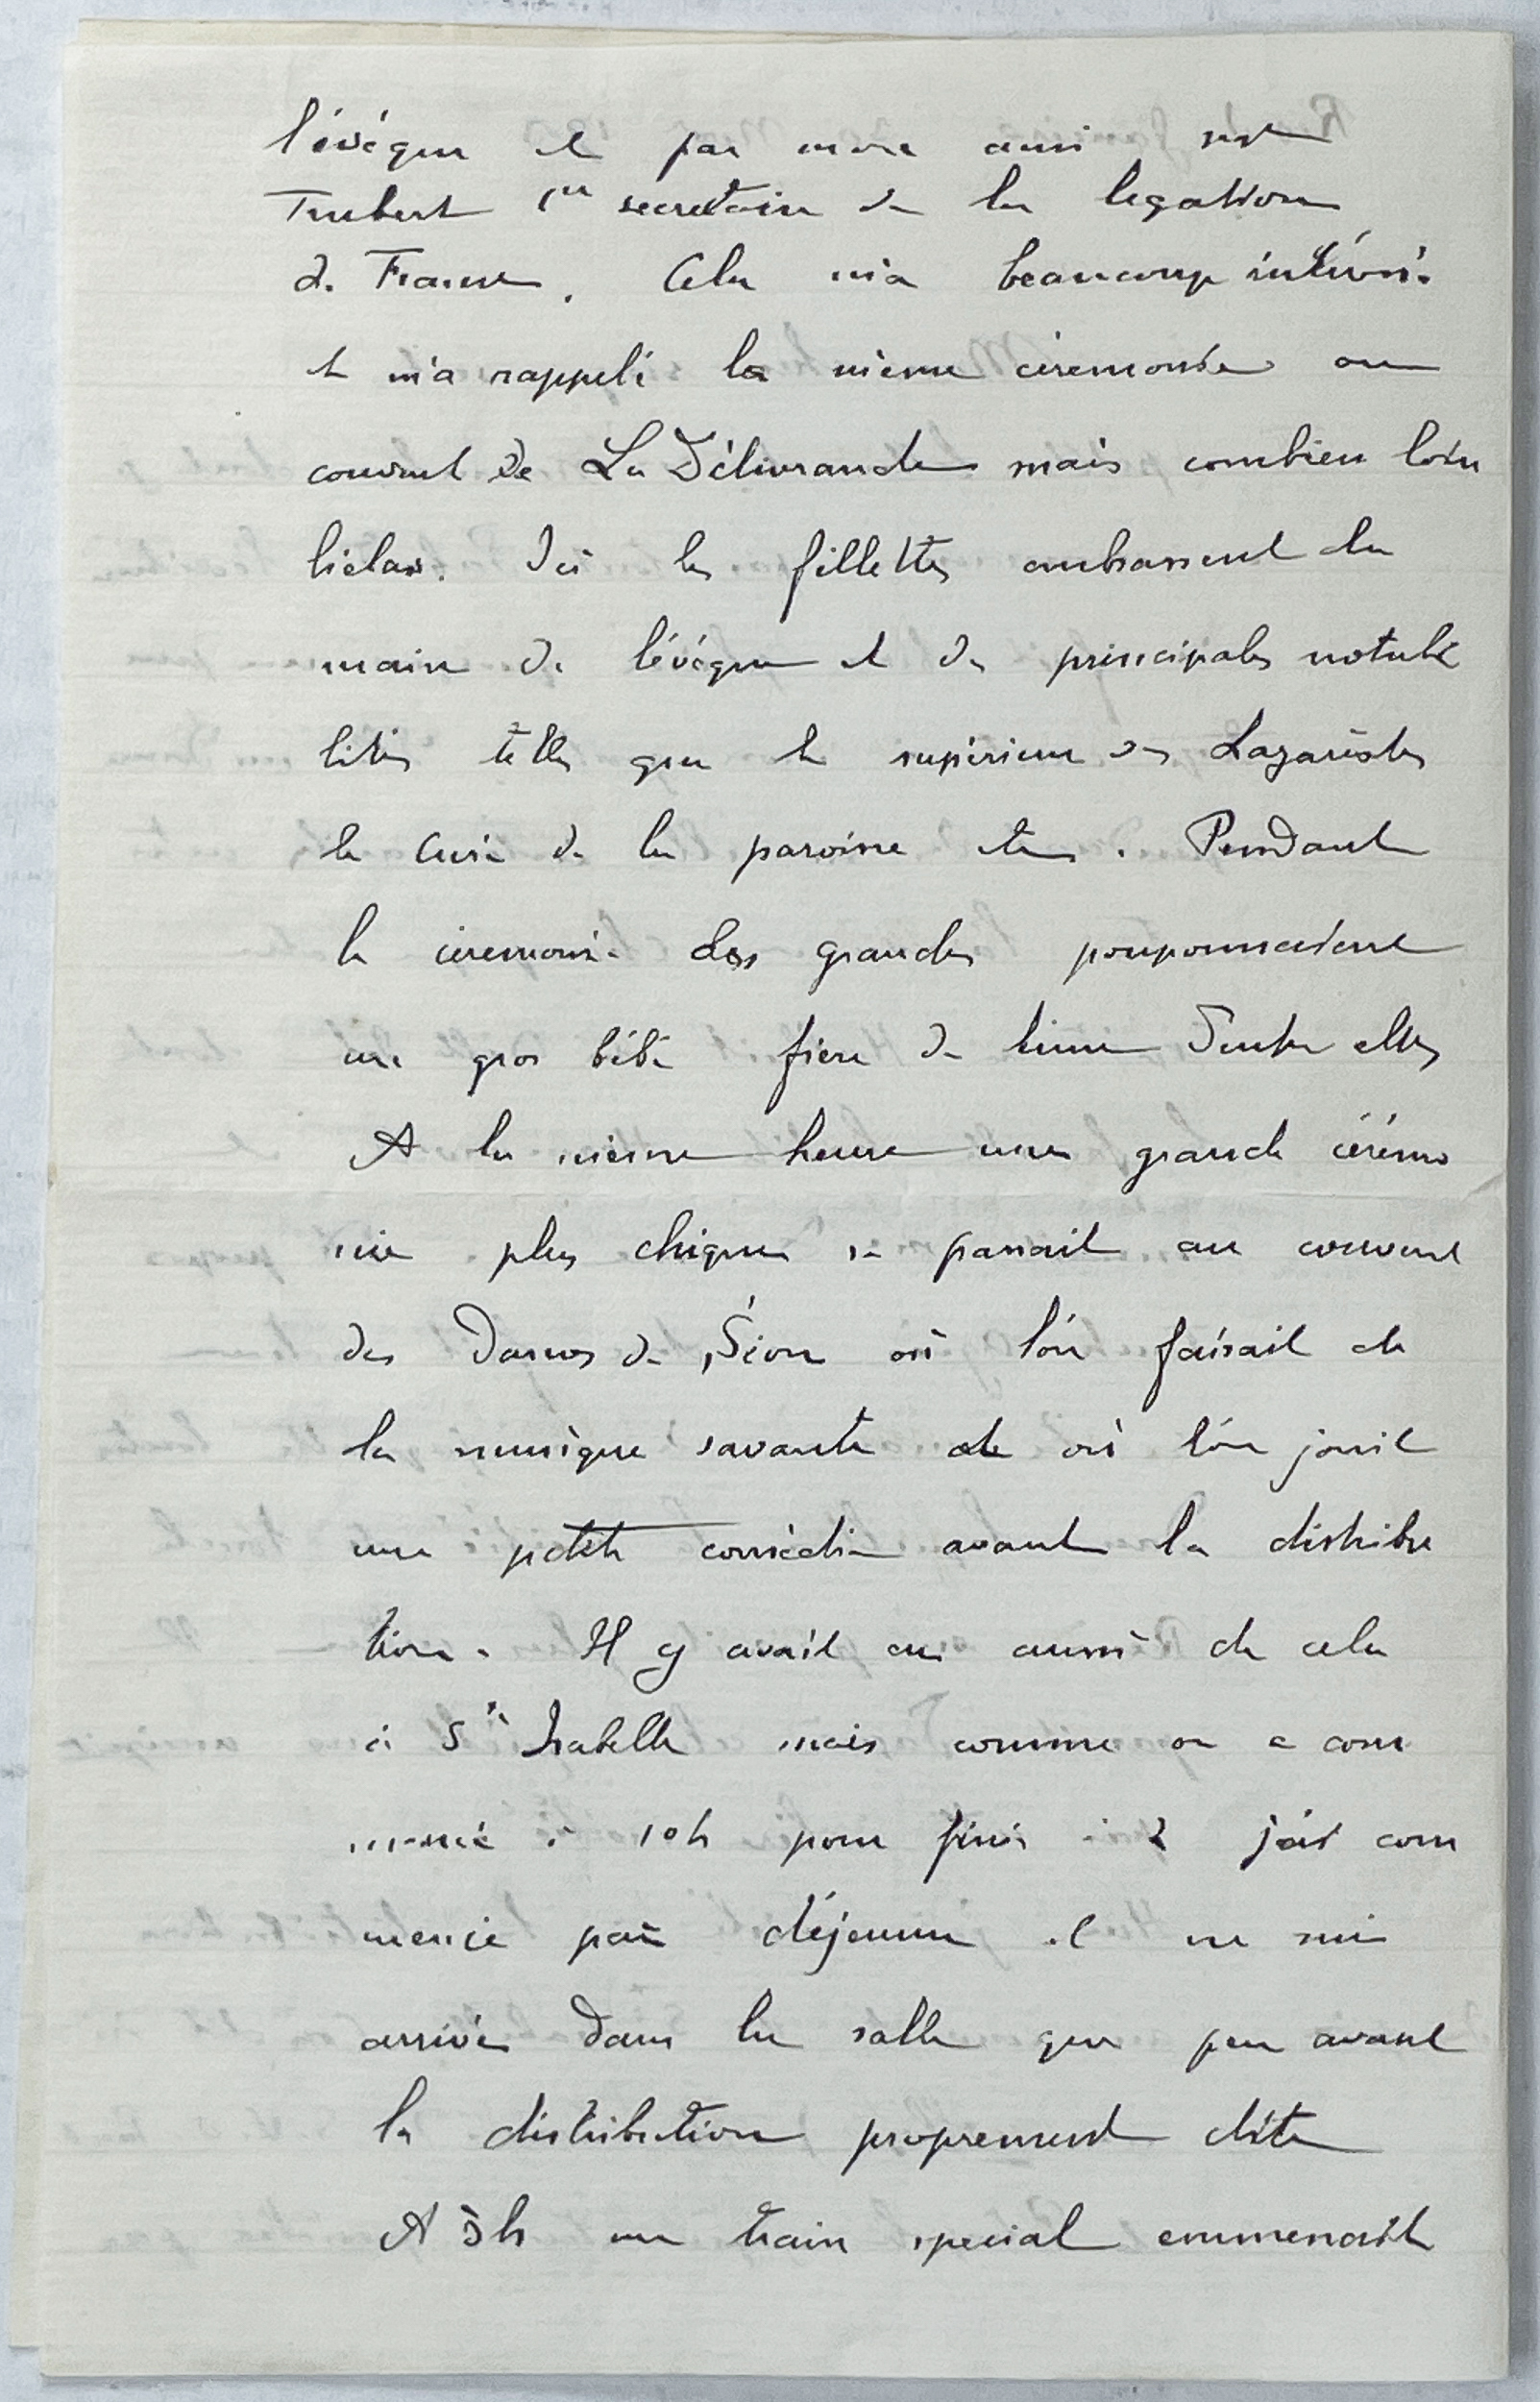 l'évêque et par mon ami
Trubert 1er secretaire de la legation
de France. Cela m'a beaucoup intéressé
et m'a rappelé la même céremonie au
couvent de La Délivrande mais combien loin
hélas. Ici les fillettes embrassent la
main de l'évêque et des principales notabi
lités telles que le supérieur des Lazaristes
le Curé de la paroisse etc. Pendant
la ceremonie les grandes pouponnaient
un gros bébé fiere de
A la même heure une grande cérémo
nie plus chique se passait au couvent
des Dames de Sion où l'on faisait de
la musique savante et où l'on jouait
une petite comédie avant la distribu
tion. Il y avait eu aussi de cela
à Ste Isabelle mais comme on a com
mencé à 10h pour finir à 2 j'ai com
mencé par déjeuner et ne suis
arrivé dans la salle que peu avant
la distribution proprement dite
A 3h un train special emmenait